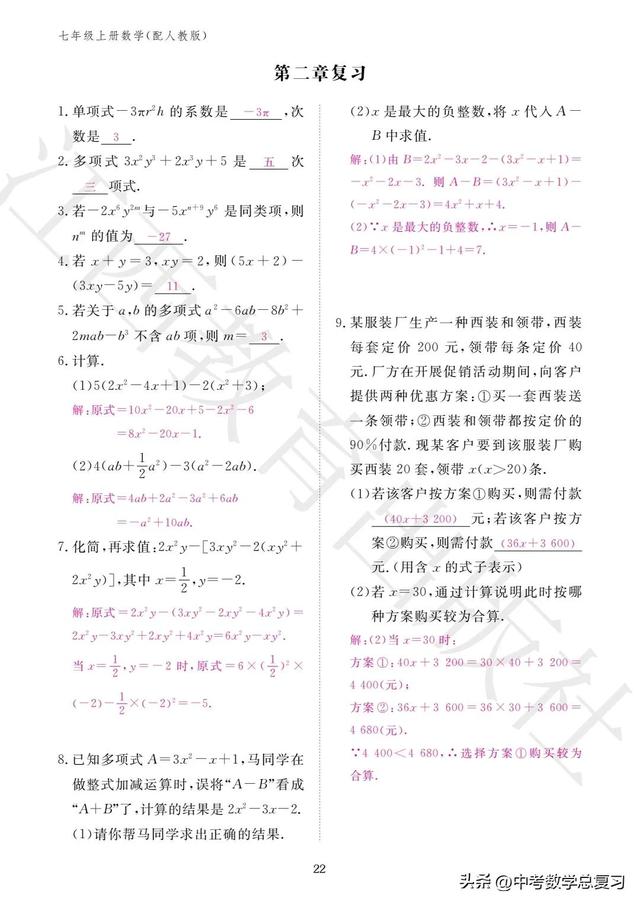 七年级上册数学(配人教版)
第二章复习
1.单项式-3πr²h 的系数是 -3π ,次
数是 3 .
2.多项式 3x²y³+2x³y+5 是 五 次
三 项式.
3.若-2x⁶y²ᵐ与-5xⁿ⁺⁹y⁶ 是同类项,则
nᵐ 的值为 -27 .
4.若 x+y=3,xy=2,则(5x+2)-
(3xy-5y)= 11 .
5.若关于 a,b 的多项式 a²-6ab-8b²+
2mab-b³ 不含 ab 项,则 m= 3 .
6.计算.
(1)5(2x²-4x+1)-2(x²+3);
解:原式=10x²-20x+5-2x²-6
=8x²-20x-1.
(2)4(ab+1/2a²)-3(a²-2ab).
解:原式=4ab+2a²-3a²+6ab
=-a²+10ab.
7.化简,再求值:2x²y-[3xy²-2(xy²+
2x²y)],其中 x=1/2,y=-2.
解:原式=2x²y-(3xy²-2xy²-4x²y)=
2x²y-3xy²+2xy²+4x²y=6x²y-xy².
当 x=1/2,y=-2 时,原式=6×(1/2)²×
(-2)-1/2×(-2)²=-5.
8.已知多项式 A=3x²-x+1,马同学在
做整式加减运算时,误将“A-B”看成
“A+B”了,计算的结果是 2x²-3x-2.
(1)请你帮马同学求出正确的结果.
(2)x 是最大的负整数,将 x 代入 A-
B 中求值.
解:(1)由 B=2x²-3x-2-(3x²-x+1)=
-x²-2x-3. 则 A-B=(3x²-x+1)-
(-x²-2x-3)=4x²+x+4.
(2)∵x 是最大的负整数,∴x=-1,则 A-
B=4×(-1)²-1+4=7.
9.某服装厂生产一种西装和领带,西装
每套定价 200 元,领带每条定价 40
元.厂方在开展促销活动期间,向客户
提供两种优惠方案:①买一套西装送
一条领带;②西装和领带都按定价的
90%付款.现某客户要到该服装厂购
买西装 20 套,领带 x(x>20)条.
(1)若该客户按方案①购买,则需付款
(40x+3 200) 元;若该客户按方
案②购买,则需付款 (36x+3 600)
元.(用含 x 的式子表示)
(2)若 x=30,通过计算说明此时按哪
种方案购买较为合算.
解:(2)当 x=30 时:
方案①:40x+3 200=30×40+3 200=
4 400(元);
方案②:36x+3 600=36×30+3 600=
4 680(元).
∵4 400<4 680,∴选择方案①购买较为
合算.
22
江西教育出版社
头条 @中考数学总复习